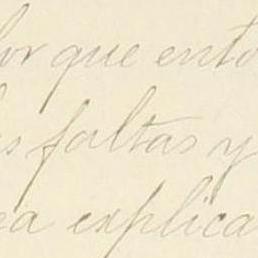 por que ento
s faltas y
ea explica